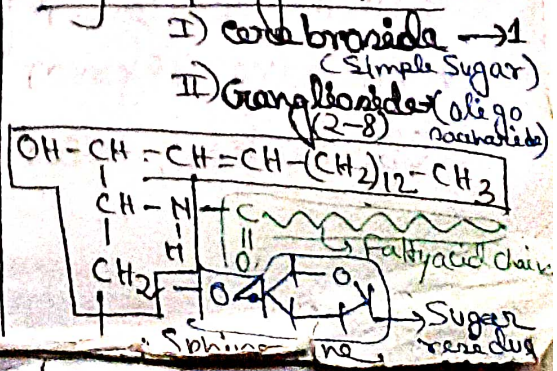 I) cerebroside → 1
(Simple Sugar)
II) Ganglioside (oligo
(2-8) saccharide)
OH-CH-CH=CH-(CH2)12-CH3
CH-N-C
H O
Fattyacid chain
CH2-O O
Sugar
residue